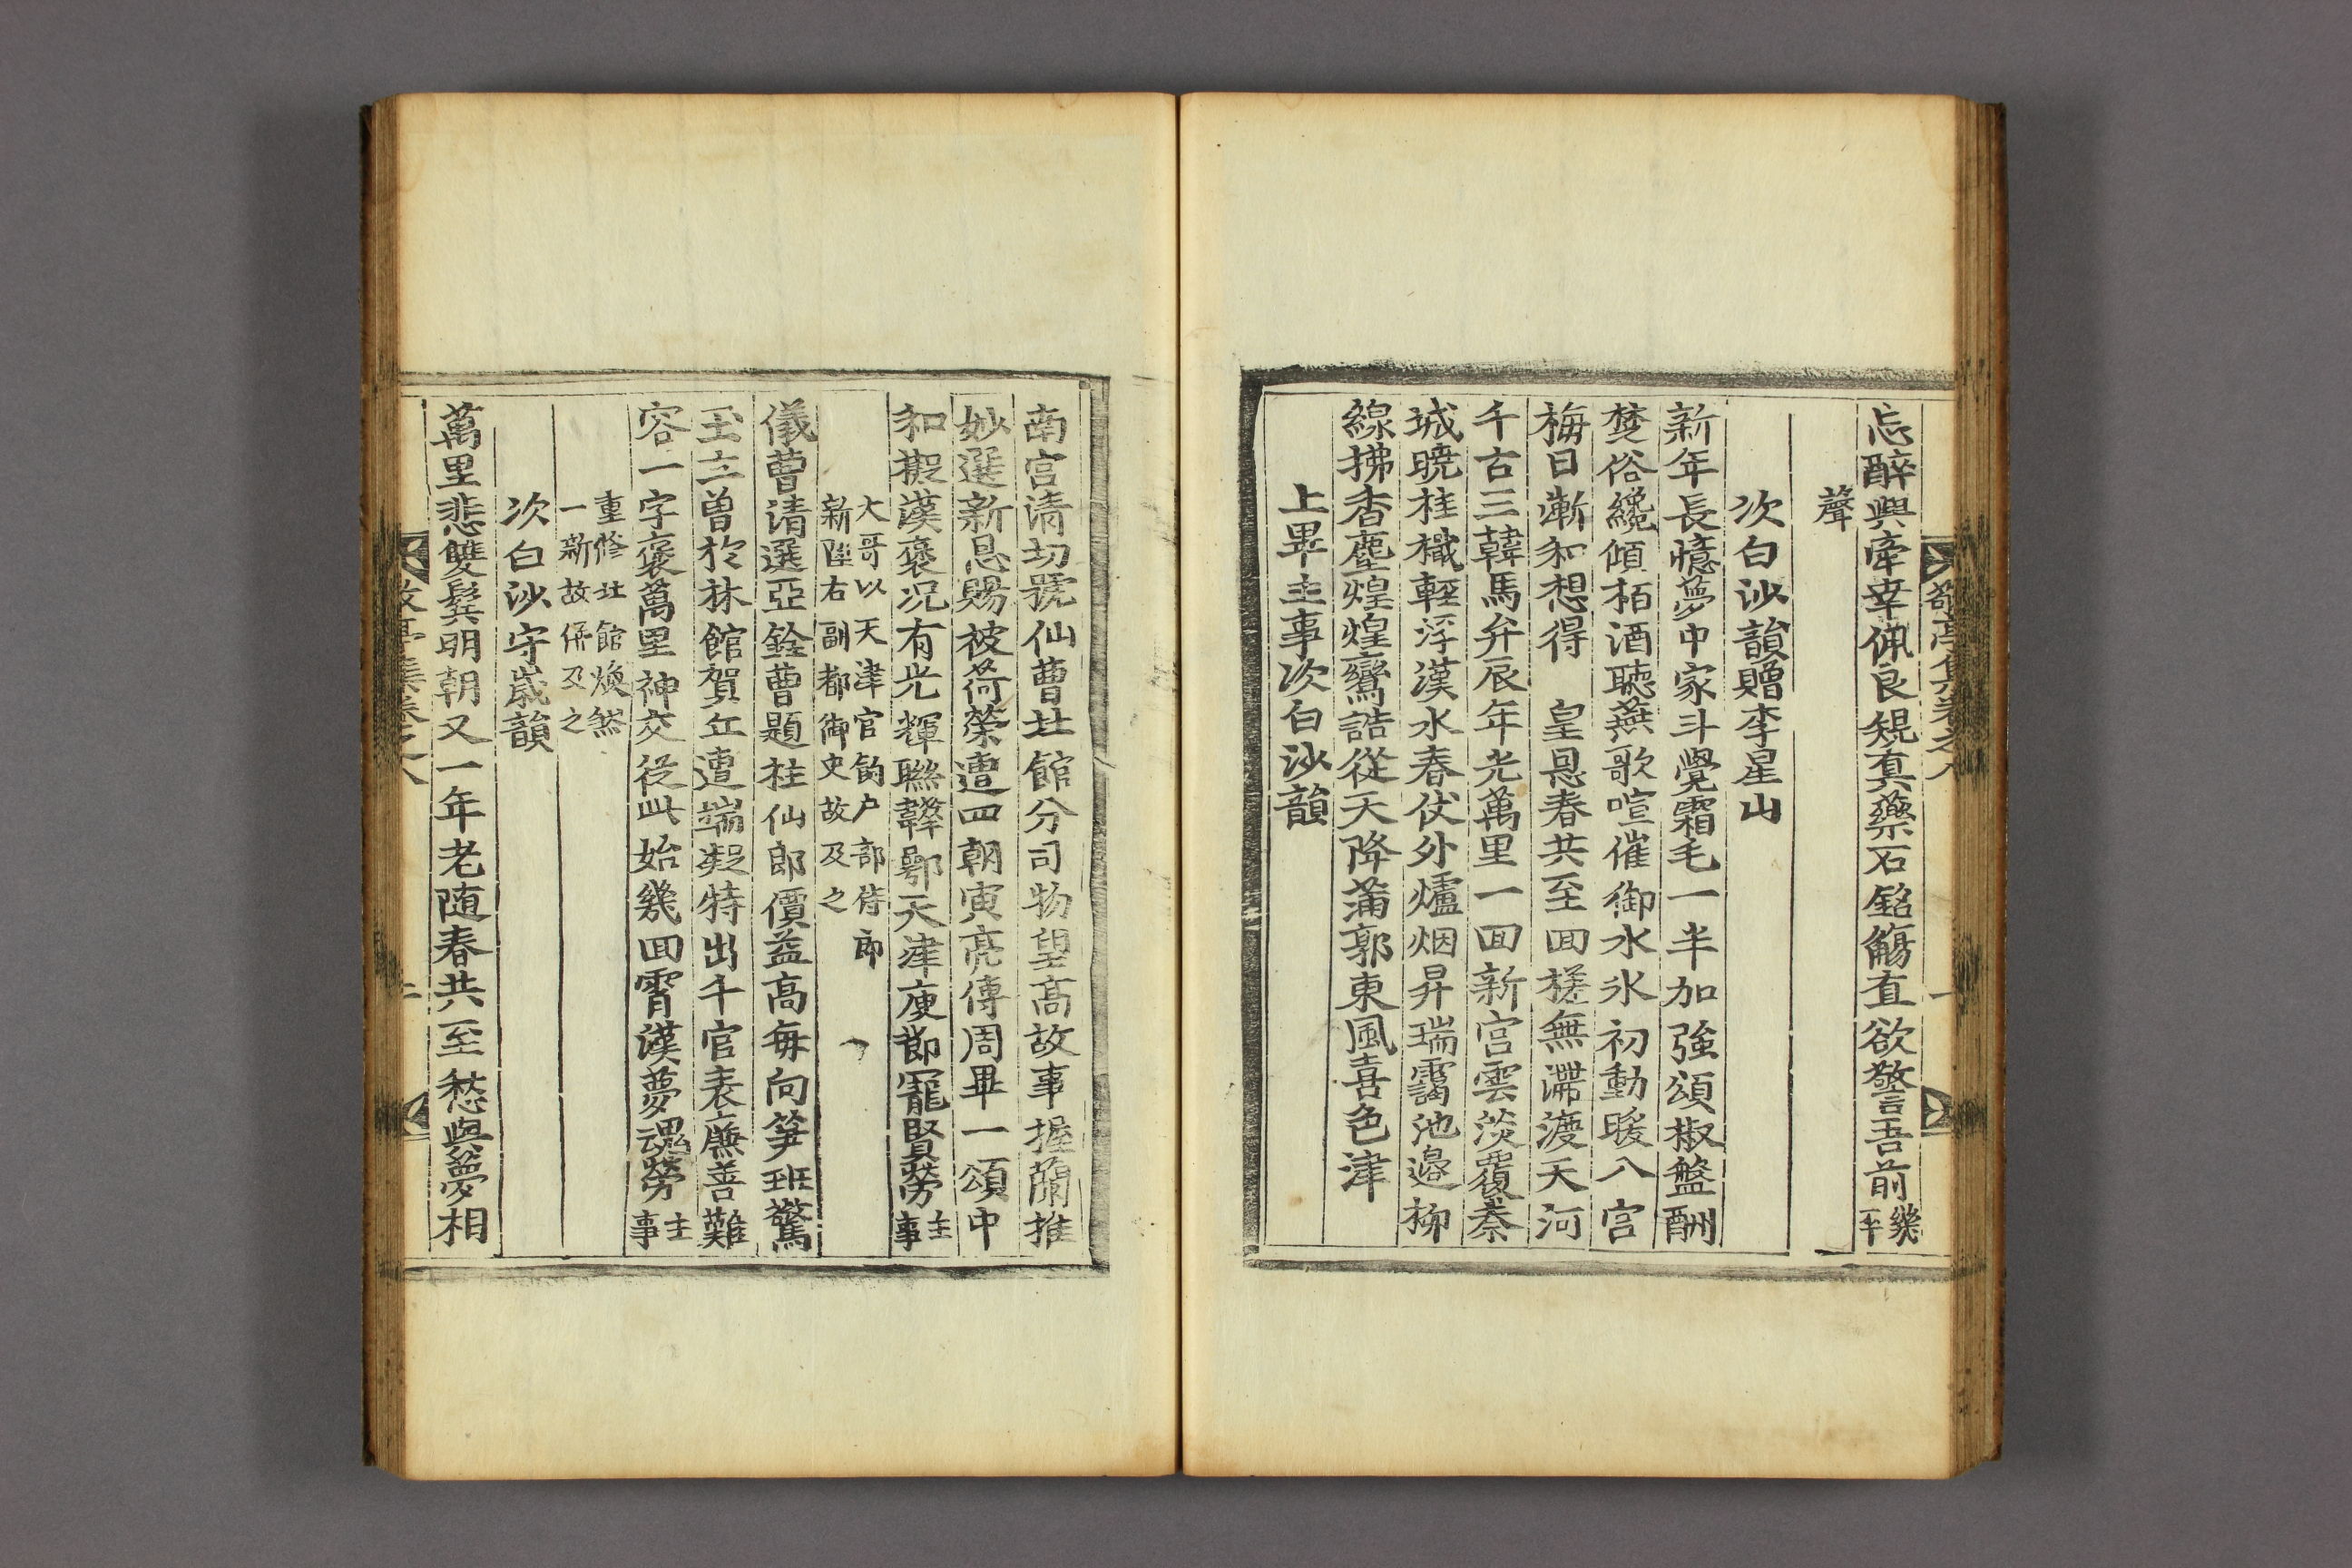 敬亭集卷之八
一
忘醉興牽幸佩良規真藥石銘觴直欲警吾前幾平
聲
次白沙韻贈李星山
新年長憶夢中家斗覺霜毛一半加強頌椒盤酬
楚俗纔傾栢酒聽燕歌喧催御水氷初動暖入宮
梅日漸和想得 皇恩春共至回槎無滯渡天河
千古三韓馬弁辰年光萬里一回新宮雲淡覆秦
城曉桂檝輕浮漢水春仗外爐烟昇瑞靄池邊柳
線拂香塵煌煌鸞誥從天降蒲郭東風喜色津
上畢主事次白沙韻
南宮清切號仙曹北館分司物望高故事握蘭推
妙選新恩賜被荷榮遭四朝寅亮傳周畢一頌中
和擬漢褒况有光輝聯韡鄂天津庾節寵賢勞主事
大哥以天津官餉户部侍郎
新陞右副都御史故及之
儀曹清選亞銓曹題柱仙郎價益高每向笋班驚
玉立曾於林館賀丘遭端凝特出千官表廉善難
容一字褒萬里神交從此始幾回霄漢夢魂勞主事
重修北館煥然
一新故併及之
次白沙守歲韻
萬里悲雙鬂明朝又一年老随春共至愁與夢相
敬亭集卷之八
二